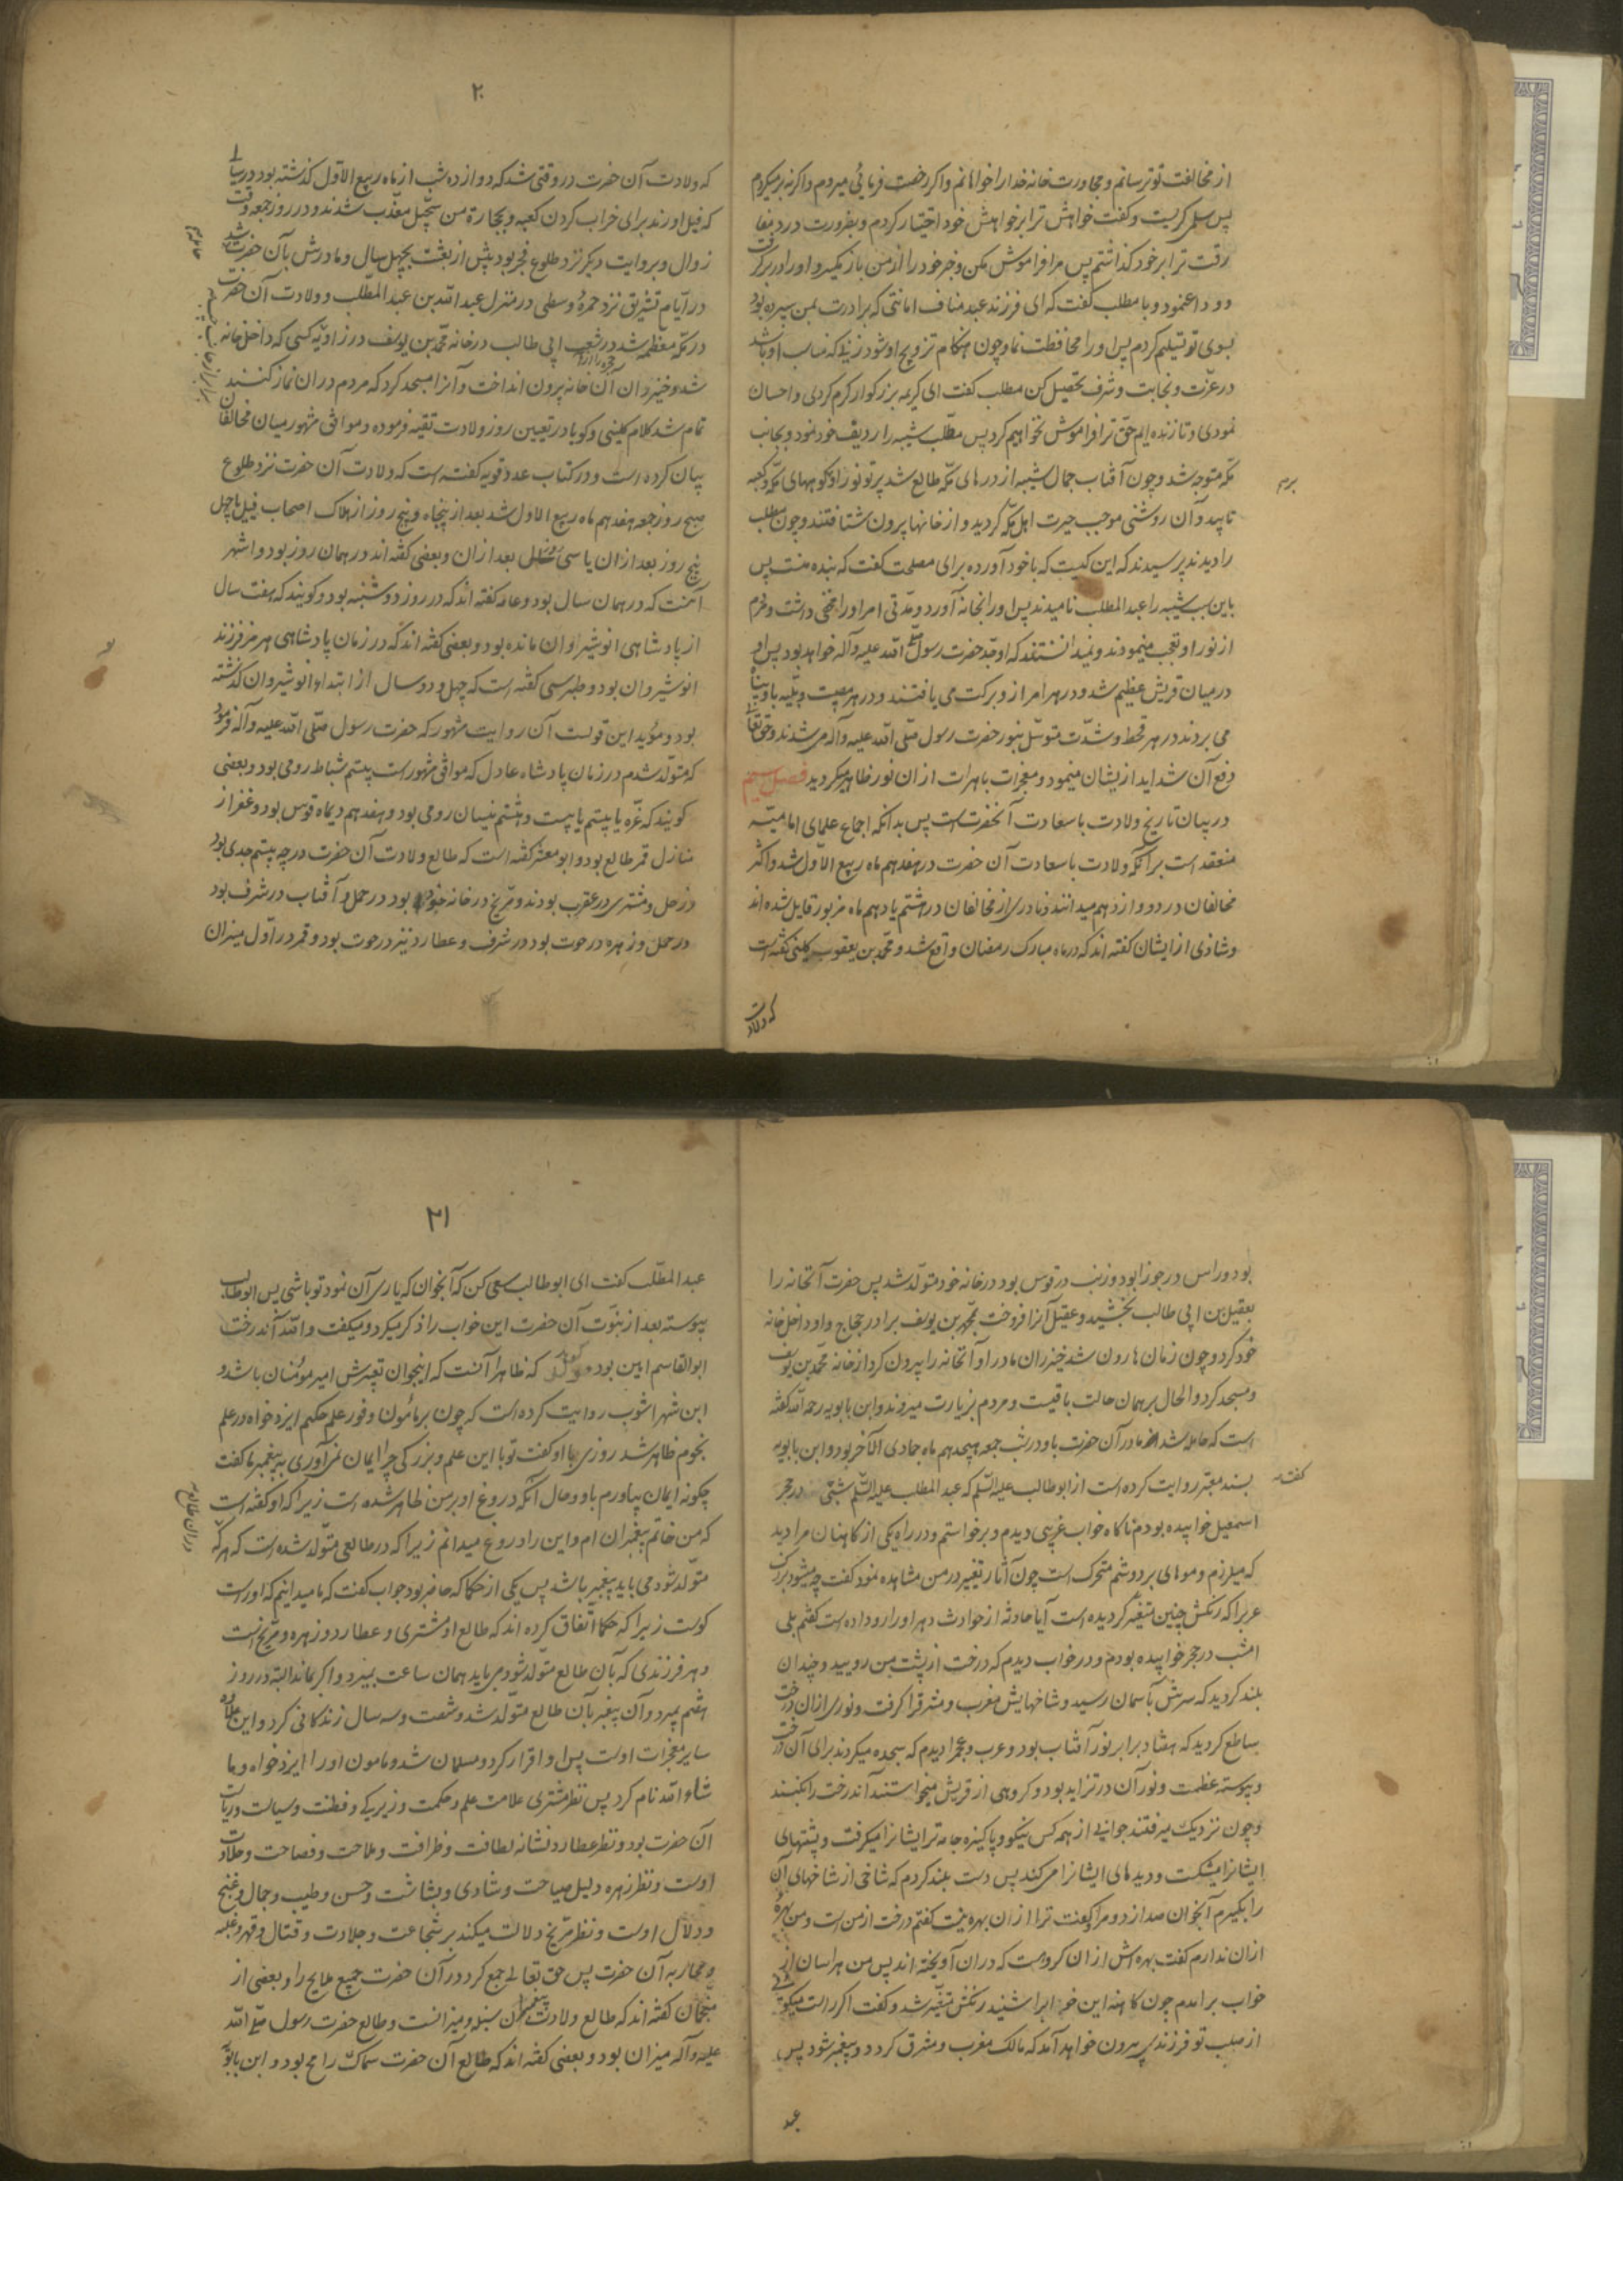 از مخالفت تو ترسانم و مجاورت خانه خدا را خواهانم و اگر رخصت فرمائی میروم و اگرنه برمیگردم
پس سلمی گریست و گفت خواهش ترا بر خواهش خود اختیار کردم و بضرورت درد مفا
رقت ترا بر خود گذاشتم پس مرا فراموش مکن و خبر خود را از من باز مگیر و او را در بر گرفت
و وداع نمود و با مطلب گفت که ای فرزند عبد مناف امانتی که برادرت بمن سپرده بود
بسوی تو تسلیم کردم پس او را محافظت نما و چون هنگام تزویج او شود زنی که مناسب او باشد
در عزّت و نجابت و شرف تحصیل کن مطلب گفت ای کریمه بزرگوار کرم کردی و احسان
نمودی و تا زنده‌ایم حقّ ترا فراموش نخواهیم کرد پس مطّلب شیبه را ردیف خود نمود و بجانب
مکّه متوجه شد و چون آفتاب جمال شیبه از درهای مکّه طالع شد پرتو نور او بکوههای مکّه و کعبه
تابید و آن روشنی موجب حیرت اهل مکّه گردید و از خانها بیرون شتافتند و چون مطلب
را دیدند پرسیدند که این کیست که با خود آورده برای مصلحت گفت که بنده منست پس
باین سبب شیبه را عبد المطلب نامیدند پس او را بخانه آورد و مدّتی امر او را مخفی داشت و مردم
از نور او تعجب مینمودند و نمیدانستند که او جدّ حضرت رسول صلّی الله علیه و آله خواهد بود پس او
در میان قریش عظیم شد و در هر امر از و برکت می یافتند و در هر مصیبت و بلیّه باو پناه
می بردند در هر قحط و شدّت متوسّل بنور حضرت رسول صلّی الله علیه و آله می شدند و حق تعالی
دفع آن شداید ازیشان مینمود و معجزات باهرات از ان نور ظاهر میگردید فصل سیم
در بیان تاریخ ولادت با سعادت آنحضرتست پس بدانکه اجماع علمای امامیّه
منعقد است بر آنکه ولادت با سعادت آن حضرت در هفدهم ماه ربیع الاوّل شد و اکثر
مخالفان در دوازدهم میدانند و نادری از مخالفان در هشتم یا دهم ماه مزبور قایل شده اند
و شاذی از ایشان گفته اند که در ماه مبارک رمضان واقع شد و محمّد بن یعقوب کلینی گفته است
که ولادت
۲۰
که ولادت آن حضرت در وقتی شد که دوازده شب از ماه ربیع الاوّل گذشته بود در سالی
که فیل اوردند برای خراب کردن کعبه و بحجارة من سجّیل معذّب شدند و در روز جمعه وقت
زوال و بروایت دیگر نزد طلوع فجر بود پیش از بعثت بچهل سال و مادرش بآن حضرت
در ایّام تشریق نزد جمرۀ وسطی در منزل عبد الله بن عبد المطّلب و ولادت آن حضرت
در مکّه معظّمه شد در شعب ابی طالب در خانه محمّد بن یوسف در زاویۀ کسی که داخل خانه
شد و خیزران آن خانه بیرون انداخت و آنرا مسجد کرد که مردم در ان نماز کنند
تمام شد کلام کلینی و گویا در تعیین روز ولادت تقیه فرموده و موافق مشهور میان مخالفان
بیان کرده است و در کتاب عدد قویه گفته است که ولادت آن حضرت نزد طلوع
صبح روز جمعه هفدهم ماه ربیع الاول شد بعد از پنجاه و پنج روز از هلاک اصحاب فیل یا چهل
پنج روز بعد از ان یا سی سال بعد از ان و بعضی گفته اند در همان روز بود و اشهر
آنست که در همان سال بود و عامه گفته اند که در روز دوشنبه بود و گویند که هفت سال
از پادشاهی انوشیروان مانده بود و بعضی گفته اند که در زمان پادشاهی هرمز فرزند
انوشیروان بود و طبرسی گفته است که چهل و دو سال از ابتداء انوشیروان گذشته
بود و مؤید این قولست آن روایت مشهور که حضرت رسول صلّی الله علیه و آله فرمود
که متولّد شدم در زمان پادشاه عادل که موافق مشهور است بیستم شباط رومی بود و بعضی
گویند که غرّه یا بیستم یا بیست و هشتم نیسان رومی بود و هفدهم دیماه قوس بود و غفر از
منازل قمر طالع بود و ابو معشر گفته است که طالع ولادت آن حضرت درجه بیستم جدی بود
و زحل و مشتری در عقرب بودند و مرّیخ در خانه خود بود در حمل و آفتاب در شرف بود
در حمل و زهره در حوت بود در شرف و عطارد نیز در حوت بود و قمر در اوّل میزان
بود و راس در جوزا بود و زنب در قوس بود در خانه خود متولّد شد پس حضرت آنخانه را
بعقیل بن ابی طالب بخشید و عقیل آنرا فروخت بمحمّد بن یوسف برادر حجاج و او داخل خانه
خود کرد و چون زمان هارون شد خیزران مادر او آنخانه را بیرون کرد از خانه محمّد بن یوسف
و مسجد کرد و الحال بر همان حالت باقیست و مردم بزیارت میروند و ابن بابویه رحمه الله گفته
است که حامله شد مادر آن حضرت باو در شب جمعه هیجدهم ماه جمادی الآخر بود و ابن بابویه
بسند معتبر روایت کرده است از ابو طالب علیه السّلم که عبد المطلب علیه السّلم شبی در حجر
گفت
اسمعیل خوابیده بودم ناگاه خواب غریبی دیدم و برخواستم و در راه یکی از کاهنان مرا دید
که میلرزم و موهای بر دوشم متحرک است چون آثار تغییر در من مشاهده نمود گفت چه میشود بزرگ
عرب را که رنگش چنین متغیّر گردیده است آیا حادثه از حوادث دهر او را رو داده است گفتم بلی
امشب در حجر خوابیده بودم و در خواب دیدم که درخت از پشت من رویید و چندان
بلند گردید که سرش بآسمان رسید و شاخهایش مغرب و مشرق را گرفت و نوری از ان درخت
ساطع گردید که هفتاد برابر نور آفتاب بود و عرب و عجم را دیدم که سجده میکردند برای آن درخت
و پیوسته عظمت و نور آن در تزاید بود و گروهی از قریش میخواستند آندرخت را بکنند
و چون نزدیک میرفتند جوانی از همه کس نیکو و پاکیزه جامه تر ایشانرا میگرفت و پشتهای
ایشانرا میشکست و دیدهای ایشانرا می کند پس دست بلند کردم که شاخی از شاخهای آن
را بگیرم آنجوان صدا زد و مرا گفت ترا از ان بهره نیست گفتم درخت از من است و من بهرۀ
از ان ندارم گفت بهره اش از ان گروهست که در ان آویخته اند پس من هراسان از
خواب بر امدم چون کاهنه این خواب را شنید رنگش متغیّر شد و گفت اگر راست میگویی
از صلب تو فرزندی بیرون خواهد آمد که مالک مغرب و مشرق گردد و پیغمبر شود پس
عبد
۲۱
عبد المطّلب گفت ای ابو طالب سعی کن که آنجوان که یاری آن نمود تو باشی پس ابو طالب
پیوسته بعد از نبوّت آن حضرت این خواب را ذکر میکرد و میگفت و الله آندرخت
ابو القاسم امین بود گوید که ظاهرا آنست که اینجوان تعبیرش امیر مؤمنان باشد و
ابن شهر اشوب روایت کرده است که چون بر مأمون وفور علم حکیم ایزد خواه در علم
نجوم ظاهر شد روزی باو گفت تو با این علم و بزرکی چرا ایمان نمی آوری به پیغمبر ما گفت
چگونه ایمان بیاورم باو و حال آنکه دروغ او بر من ظاهر شده است زیرا که او گفته است
که من خاتم پیغمبران ام و این را دروغ میدانم زیرا که در طالعی متولّد شده است که هر که
در ان طالع
متولّد شود می باید پیغمبر باشد پس یکی از حکما که حاضر بود جواب گفت که ما میدانیم که او راست
گوست زیرا که حکما اتّفاق کرده اند که طالع او مشتری و عطارد و زهره و مرّیخ است
و هر فرزندی که بآن طالع متولّد شود می باید همان ساعت بمیرد و اگر بماند البته در روز
هفتم بمیرد و آن پیغمبر بآن طالع متولّد شد و شصت و سه سال زندگانی کرد و این علاوه
سایر معجزات اوست پس او اقرار کرد و مسلمان شد و مامون او را ایزد خواه و ما
شاء الله نام کرد پس نظر مشتری علامت علم و حکمت و زیرکی و فطنت و سیاست و ریاست
آن حضرت بود و نظر عطارد نشانه لطافت و ظرافت و ملاحت و فصاحت و حلاوت
اوست و نظر زهره دلیل صباحت و شادی و بشاشت و حسن و طیب و جمال و غنج
و دلال اوست و نظر مرّیخ دلالت میکند بر شجاعت و جلادت و قتال و قهر و غلبه
و محاربه آن حضرت پس حق تعالی جمع کرد در آن حضرت جمیع مدایح را و بعضی از
منجّمان گفته اند که طالع ولادت پیغمبران سنبله و میزانست و طالع حضرت رسول صلّی الله
علیه و آله میزان بود و بعضی گفته اند که طالع آن حضرت سماک رامح بود و ابن بابویه